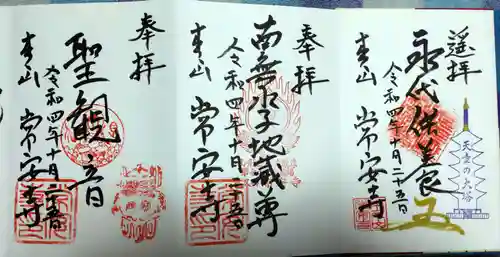 遥拝
永代供養
五
令和四年十月二十五日
東山 常安寺
天意の大塔
奉拝
南無水子地蔵尊
令和四年十月二十五日
東山 常安寺
奉拝
聖観音
令和四年十月二十五日
東山 常安寺